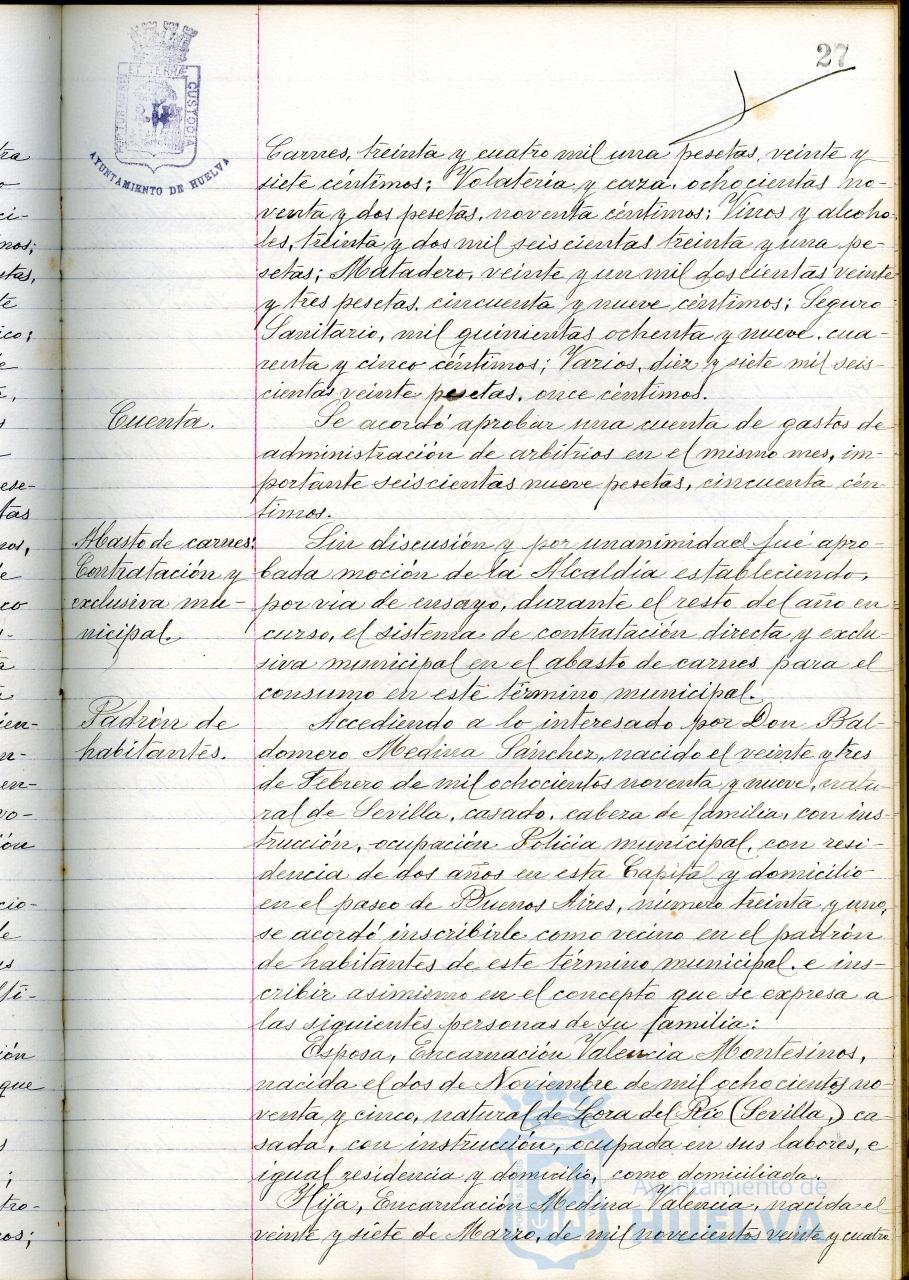 27
PORTUM MARIS
ET TERRÆ
CUSTODIA
AYUNTAMIENTO DE HUELVA
Carnes, treinta y cuatro mil una pesetas, veinte y
siete céntimos; Volatería y caza, ochocientas no-
venta y dos pesetas, noventa céntimos; Vinos y alcoho-
les, treinta y dos mil seiscientas treinta y una pe-
setas; Matadero, veinte y un mil doscientas veinte
y tres pesetas, cincuenta y nueve céntimos; Seguro
Sanitario, mil quinientas ochenta y nueve, cua-
renta y cinco céntimos; Varios, diez y siete mil seis-
cientas veinte pesetas, once céntimos.
Cuenta.
Se acordó aprobar una cuenta de gastos de
administración de arbitrios en el mismo mes, im-
portante seiscientas nueve pesetas, cincuenta cén-
timos.
Abasto de carnes:
Contratación y
exclusiva mu-
nicipal.
Sin discusión y por unanimidad fué apro-
bada moción de la Alcaldía estableciendo,
por via de ensayo, durante el resto del año en
curso, el sistema de contratación directa y exclu-
siva municipal en el abasto de carnes para el
consumo en este término municipal.
Padrón de
habitantes.
Accediendo a lo interesado por Don Bal-
domero Medina Sanchez, nacido el veinte y tres
de Febrero de mil ochocientos noventa y nueve, natu-
ral de Sevilla, casado, cabeza de familia, con ins-
trucción, ocupación Policía municipal, con resi-
dencia de dos años en esta Capital y domicilio
en el paseo de Buenos Aires, número treinta y uno,
se acordó inscribirle como vecino en el padrón
de habitantes de este término municipal, e ins-
cribir asimismo en el concepto que se expresa a
las siguientes personas de su familia:
Esposa, Encarnación Valencia Montesinos,
nacida el dos de Noviembre de mil ochocientos no-
venta y cinco, natural de Lora del Río (Sevilla,) ca-
sada, con instrucción, ocupada en sus labores, e
igual residencia y domicilio, como domiciliada.
Hija, Encarnación Medina Valencia, nacida el
veinte y siete de Marzo, de mil novecientos veinte y cuatro
Ayuntamiento de
HUELVA